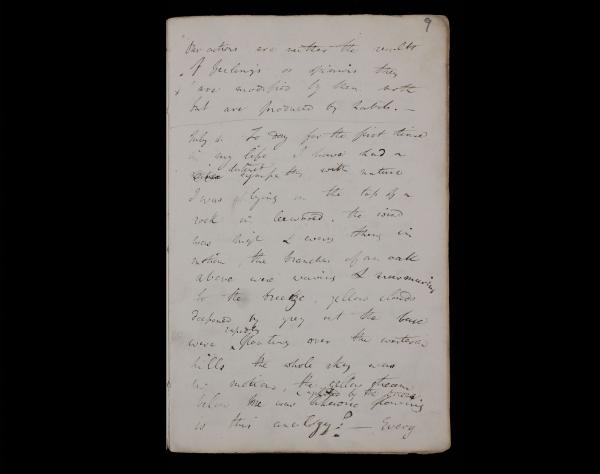 9
Our actions are neither the results
of feelings or opinions they
are modified by them both
but are produced by habit. —
July 1. To day for the first time
in my life I have had a
distinct
sympathy with nature
I was lying on the top of a
rock in leeward. the wind
was high & every thing in
motion, the branches of an oak
above were waving & murmuring
to the breeze. yellow clouds
deepened by grey at the base
rapidly
were floating over the western
hills the whole sky was
in motion, the yellow stream
agitated by the breeze.
below me was flowing
is this analogy? — Every